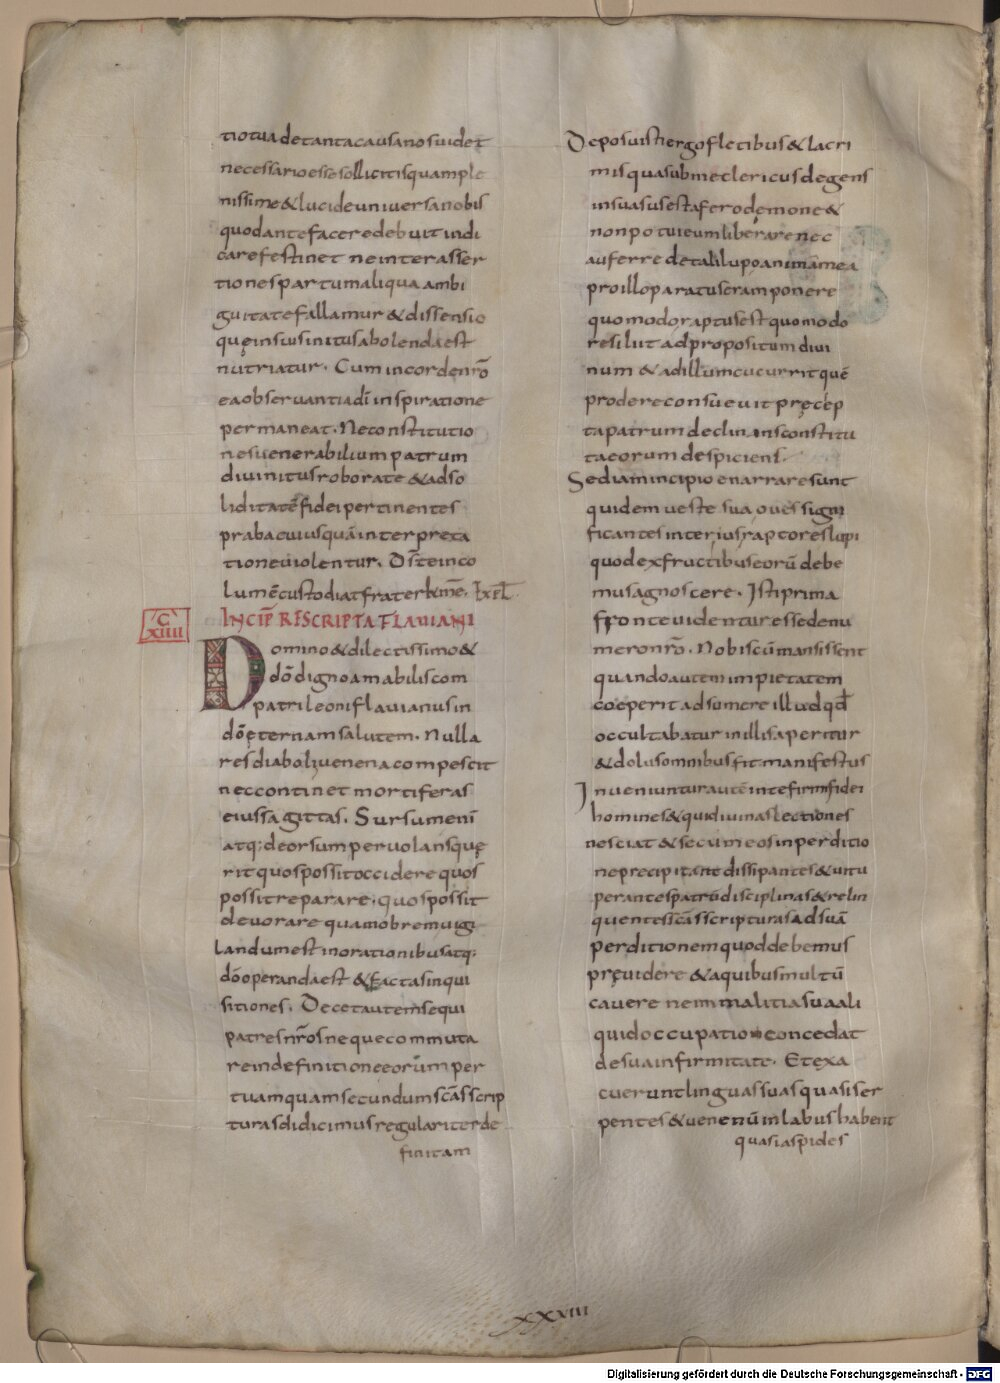 tiotua detanta causa nos uidet
necessario esse sollicitis quample
nissime & lucide uniuersa nobis
quod ante facere debuit indi
care festinet ne inter asser
tiones partum aliqua ambi
guitate fallamur & dissensio
quę in suis initiis abolenda est
nutriatur. Cum in corde nr̄o
ea obseruantia dī inspiratione
permaneat. Ne constitutio
nes uenerabilium patrum
diuinitus roborate & ad so
liditatē fidei pertinentes
praba cuiusquā interpreta
tione uiolentur. D̄s te inco
lumē custodiat frater kmē. Expl̄
C
XIIII
INCIP̄ RESCRIPTA FLAVIANI
Domino & dilectissimo &
dō digno amabilis com
patri leoni flauianus in
dō ęternam salutem. Nulla
res diaboli uenena compescit
nec continet mortiferas
eius sagittas. Sursum enī
atq; deorsum peruolans quę
rit quos possit occidere quos
possit reparare. quos possit
deuorare quamobrem uigi
landum est in orationibus atq;
dō operanda est & factas inqui
sitiones. Decet autem sequi
patres nr̄os neque commuta
re in definitione eorūm per
tuam quam secundum scās scrip
turas didicimus regulariter de
finitam
Deposui sti ergo fletibus & lacri
mis qua sub me clericus degens
insua sus est a fero demone &
non potui eum liberare nec
auferre de tali lupo animā mea
pro illo paratus eram ponere
quomodo raptus est quomodo
resiluit ad propositum diui
num & ad illum cucurrit quē
prodere consueuit pręcep
ta patrum declinans constitu
ta eorum despiciens.
Sed iam incipio enarrare sunt
quidem ueste sua oues signi
ficantes interius raptores lupi
quod ex fructibus eorū debe
mus agnoscere. Isti prima
fronte uidentur esse de nu
mero nr̄o. Nobiscū mansissent
quando autem impietatem
coeperit adsumere illud qd̄
occultabatur in illis aperitur
& dolus omnibus fit manifestus
Inueniuntur autē inte firmi fidei
homines & qui diuinas lectiones
nesciat & secum eos in perditio
ne precipitant dissipantes & uitu
perantes patrū disciplinas & relin
quentes scās scripturas ad suā
perditionem quod debemus
pręuidere & a quibus multū
cauere nemini malitia sua ali
quid occupatio concedat
de sua infirmitate. Et exa
cuerunt linguas suas quasi ser
pentes & uenenūm labus habent
quasi aspides
XXVIII
Digitalisierung gefördert durch die Deutsche Forschungsgemeinschaft - DFG